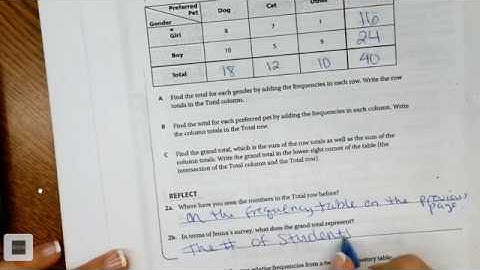 Preferred Pet
Gender
Dog
Cat
Other
Girl 8 7 1 16
Boy 10 5 9 24
Total 18 12 10 40
A Find the total for each gender by adding the frequencies in each row. Write the row
totals in the Total column.
B Find the total for each preferred pet by adding the frequencies in each column. Write
the column totals in the Total row.
C Find the grand total, which is the sum of the row totals as well as the sum of the
column totals. Write the grand total in the lower-right corner of the table (the
intersection of the Total column and the Total row).
REFLECT
2a. Where have you seen the numbers in the Total row before?
On the frequency table on the previous
page
2b. In terms of Jenna's survey, what does the grand total represent?
The # of students
relative frequencies from a
table: